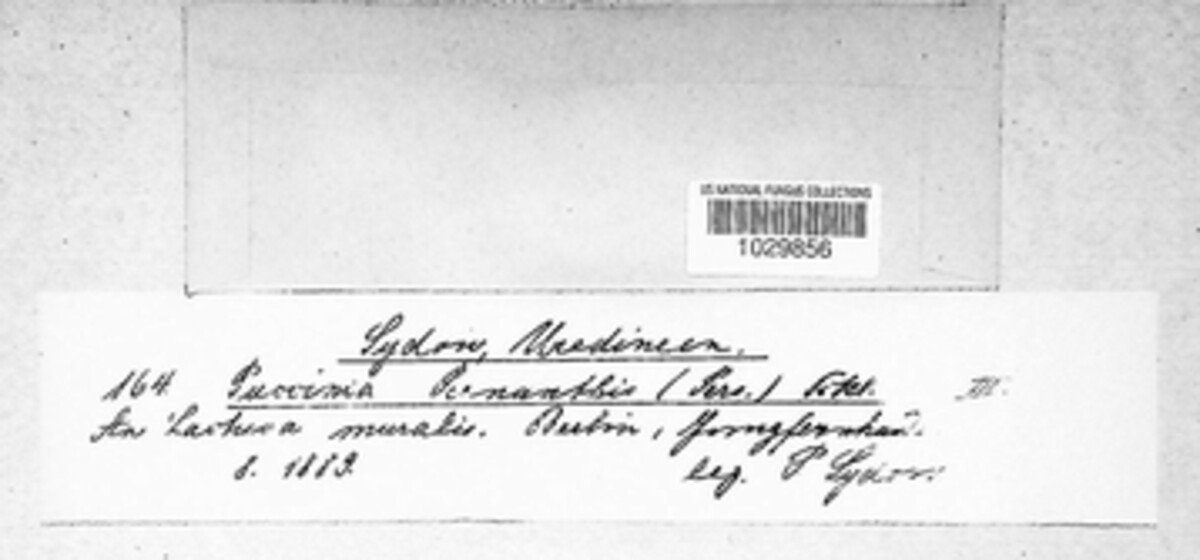 US NATIONAL FUNGUS COLLECTIONS
1029856
Sydow, Uredineen.
164 Puccinia Prenanthis (Pers.) Fckl. III.
An Lactuca muralis. Berlin, Jungfernhei.
8. 1889.
leg. P Sydow.